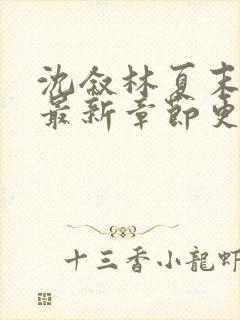 沈叙林夏末
最新章节更
十三香小龍虾